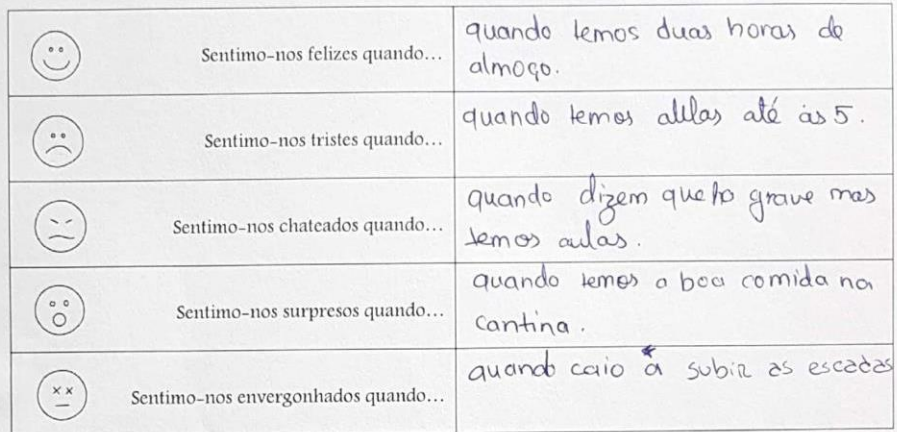 Sentimo-nos felizes quando...
quando temos duas horas de
almoço.
Sentimo-nos tristes quando...
quando temos aulas até às 5.
Sentimo-nos chateados quando...
quando dizem que há grave mas
temos aulas.
Sentimo-nos surpresos quando...
quando temos a boa comida na
cantina.
Sentimo-nos envergonhados quando...
quando caio a subir as escadas